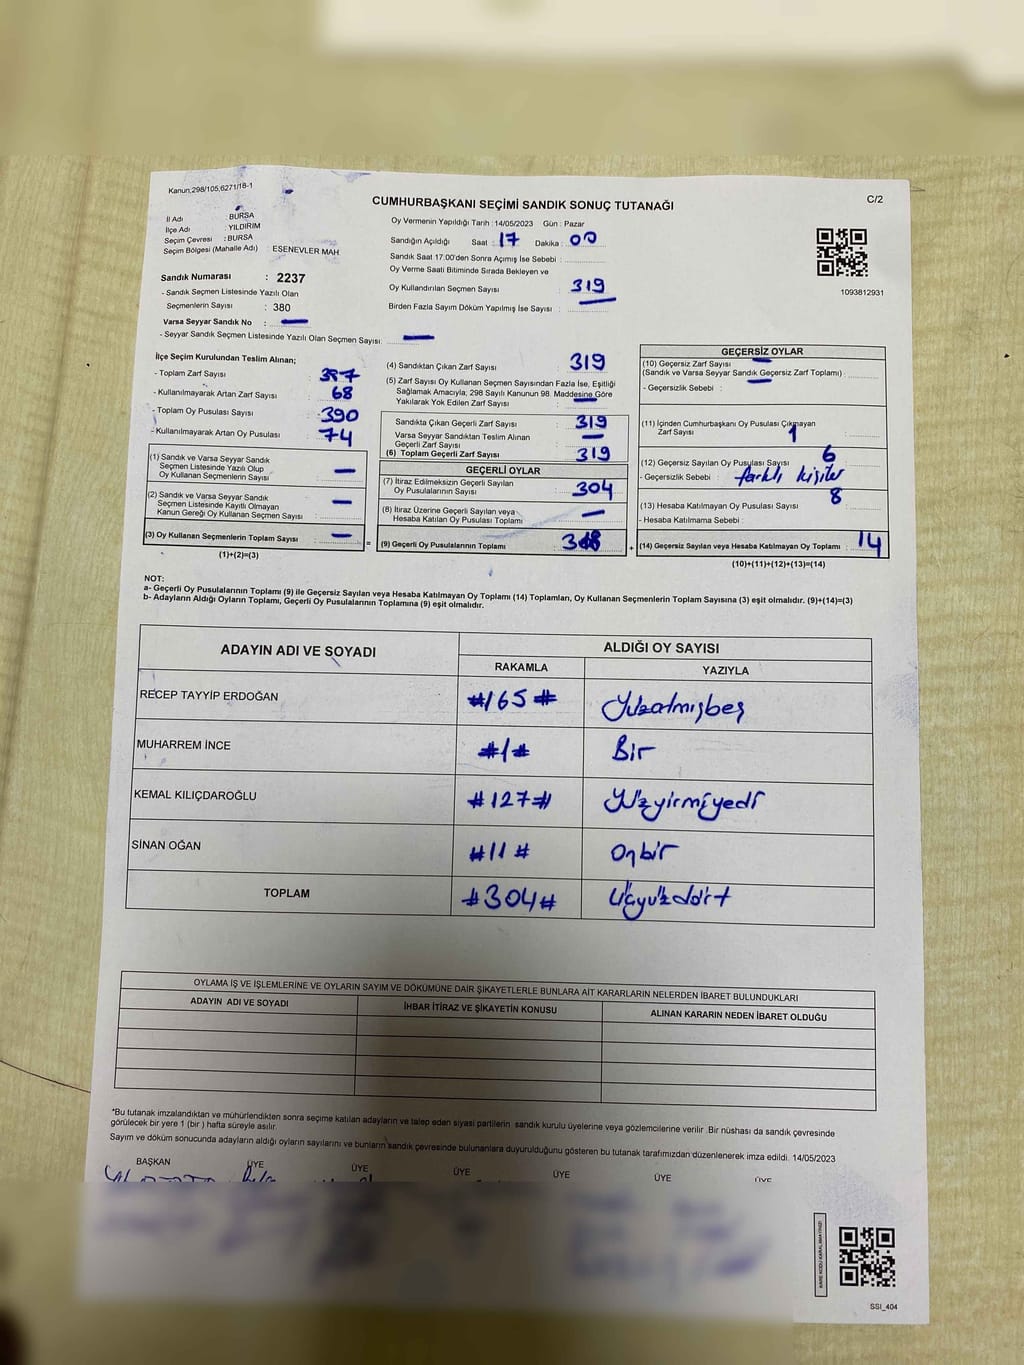 Kanun;298/105,6271/18-1
CUMHURBAŞKANI SEÇİMİ SANDIK SONUÇ TUTANAĞI
C/2
İl Adı : BURSA
İlçe Adı : YILDIRIM
Seçim Çevresi : BURSA
Seçim Bölgesi (Mahalle Adı) : ESENEVLER MAH
Sandık Numarası : 2237
- Sandık Seçmen Listesinde Yazılı Olan
Seçmenlerin Sayısı : 380
Varsa Seyyar Sandık No : —
- Seyyar Sandık Seçmen Listesinde Yazılı Olan Seçmen Sayısı: —
Oy Vermenin Yapıldığı Tarih : 14/05/2023 Gün : Pazar
Sandığın Açıldığı Saat : 17 Dakika : 00
Sandık Saat 17:00'den Sonra Açımış İse Sebebi :
Oy Verme Saati Bitiminde Sırada Bekleyen ve
Oy Kullandırılan Seçmen Sayısı : 319
Birden Fazla Sayım Döküm Yapılmış İse Sayısı :
1093812931
İlçe Seçim Kurulundan Teslim Alınan;
- Toplam Zarf Sayısı :
- Kullanılmayarak Artan Zarf Sayısı : 68
- Toplam Oy Pusulası Sayısı : 390
- Kullanılmayarak Artan Oy Pusulası : 74
(1) Sandık ve Varsa Seyyar Sandık
Seçmen Listesinde Yazılı Olup
Oy Kullanan Seçmenlerin Sayısı : —
(2) Sandık ve Varsa Seyyar Sandık
Seçmen Listesinde Kayıtlı Olmayan
Kanun Gereği Oy Kullanan Seçmen Sayısı : —
(3) Oy Kullanan Seçmenlerin Toplam Sayısı : —
(1)+(2)=(3)
(4) Sandıktan Çıkan Zarf Sayısı : 319
(5) Zarf Sayısı Oy Kullanan Seçmen Sayısından Fazla İse, Eşitliği
Sağlamak Amacıyla, 298 Sayılı Kanunun 98. Maddesine Göre
Yakılarak Yok Edilen Zarf Sayısı : —
Sandıkta Çıkan Geçerli Zarf Sayısı : 319
Varsa Seyyar Sandıktan Teslim Alınan
Geçerli Zarf Sayısı : —
(6) Toplam Geçerli Zarf Sayısı : 319
GEÇERLİ OYLAR
(7) İtiraz Edilmeksizin Geçerli Sayılan
Oy Pusulalarının Sayısı : 304
(8) İtiraz Üzerine Geçerli Sayılan veya
Hesaba Katılan Oy Pusulası Toplamı : —
= (9) Geçerli Oy Pusulalarının Toplamı :
GEÇERSİZ OYLAR
(10) Geçersiz Zarf Sayısı —
(Sandık ve Varsa Seyyar Sandık Geçersiz Zarf Toplamı) : —
- Geçersizlik Sebebi :
(11) İçinden Cumhurbaşkanı Oy Pusulası Çıkmayan
Zarf Sayısı : 1
(12) Geçersiz Sayılan Oy Pusulası Sayısı : 6
- Geçersizlik Sebebi : farklı kişiler
(13) Hesaba Katılmayan Oy Pusulası Sayısı : 8
- Hesaba Katılmama Sebebi :
+ (14) Geçersiz Sayılan veya Hesaba Katılmayan Oy Toplamı : 14
(10)+(11)+(12)+(13)=(14)
NOT:
a- Geçerli Oy Pusulalarının Toplamı (9) ile Geçersiz Sayılan veya Hesaba Katılmayan Oy Toplamı (14) Toplamları, Oy Kullanan Seçmenlerin Toplam Sayısına (3) eşit olmalıdır. (9)+(14)=(3)
b- Adayların Aldığı Oyların Toplamı, Geçerli Oy Pusulalarının Toplamına (9) eşit olmalıdır.
ADAYIN ADI VE SOYADI
ALDIĞI OY SAYISI
RAKAMLA YAZIYLA
RECEP TAYYİP ERDOĞAN #165# Yüzatmışbeş
MUHARREM İNCE #1# Bir
KEMAL KILIÇDAROĞLU #127# Yüzyirmiyedi
SİNAN OĞAN #11# Onbir
TOPLAM #304# Üçyüzdört
OYLAMA İŞ VE İŞLEMLERİNE VE OYLARIN SAYIM VE DÖKÜMÜNE DAİR ŞİKAYETLERLE BUNLARA AİT KARARLARIN NELERDEN İBARET BULUNDUKLARI
ADAYIN ADI VE SOYADI İHBAR İTİRAZ VE ŞİKAYETİN KONUSU ALINAN KARARIN NEDEN İBARET OLDUĞU
*Bu tutanak imzalandıktan ve mühürlendikten sonra seçime katılan adayların ve talep eden siyasi partilerin sandık kurulu üyelerine veya gözlemcilerine verilir .Bir nüshası da sandık çevresinde
görülecek bir yere 1 (bir ) hafta süreyle asılır.
Sayım ve döküm sonucunda adayların aldığı oyların sayılarını ve bunların sandık çevresinde bulunanlara duyurulduğunu gösteren bu tutanak tarafımızdan düzenlenerek imza edildi. 14/05/2023
BAŞKAN ÜYE ÜYE ÜYE ÜYE ÜYE ÜYE
KARE KODU KARALAMAYINIZ!
SSI_404